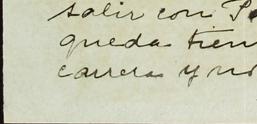 salir con P
queda tien
carrera y no